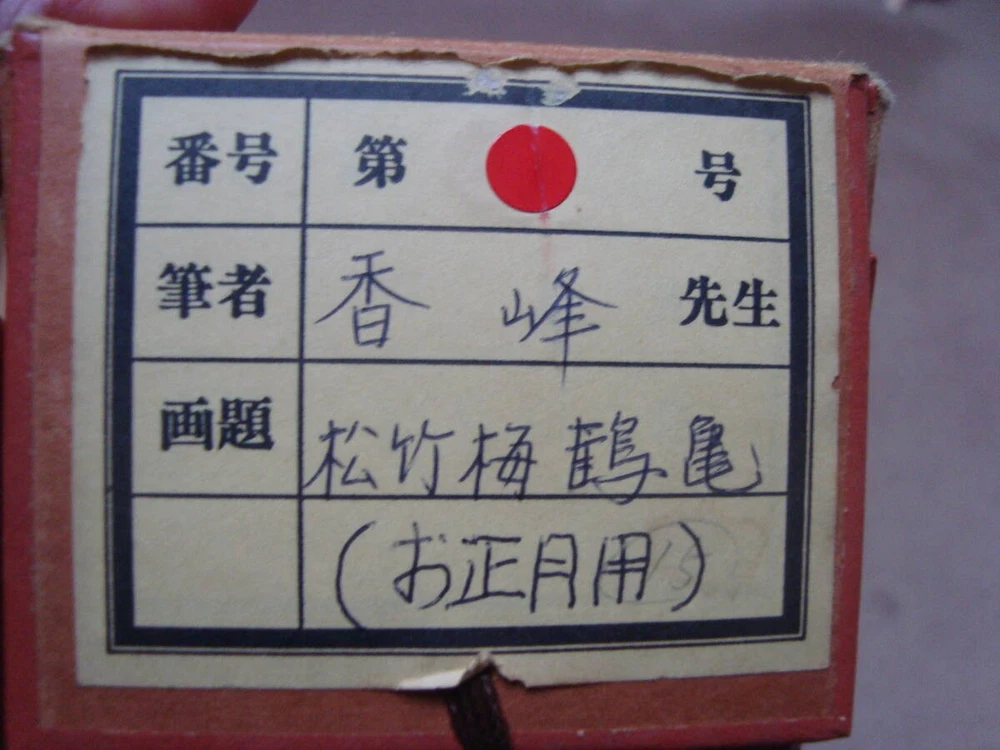 番号 第 号
筆者 香峰 先生
画題 松竹梅鶴亀
(お正月用)